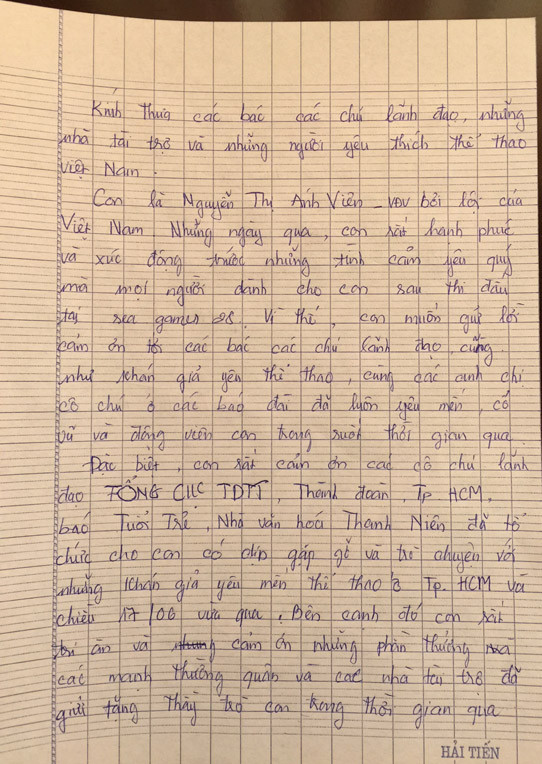 Kính thưa các bác các chú lãnh đạo, những
nhà tài trợ và những người yêu thích thể thao
Việt Nam.
Con là Nguyễn Thị Ánh Viên - VĐV bơi lội của
Việt Nam. Những ngày qua, con rất hạnh phúc
và xúc động trước những tình cảm yêu quý
mà mọi người dành cho con sau thi đấu
tại sea games 28. Vì thế, con muốn gửi lời
cảm ơn tới các bác các chú lãnh đạo, cũng
như khán giả yêu thể thao, cùng các anh chị
cô chú ở các báo đài đã luôn yêu mến, cổ
vũ và động viên con trong suốt thời gian qua.
Đặc biệt, con rất cảm ơn các cô chú lãnh
đạo TỔNG CỤC TDTT, Thành đoàn, Tp. HCM,
báo Tuổi Trẻ, Nhà văn hoá Thanh Niên đã tổ
chức cho con có dịp gặp gỡ và trò chuyện với
những khán giả yêu mến thể thao ở Tp. HCM và
chiều 17/06 vừa qua. Bên cạnh đó con rất
tri ân và cảm ơn những phần thưởng mà
các mạnh thường quân và các nhà tài trợ đã
gửi tặng thầy trò con trong thời gian qua
HẢI TIẾN